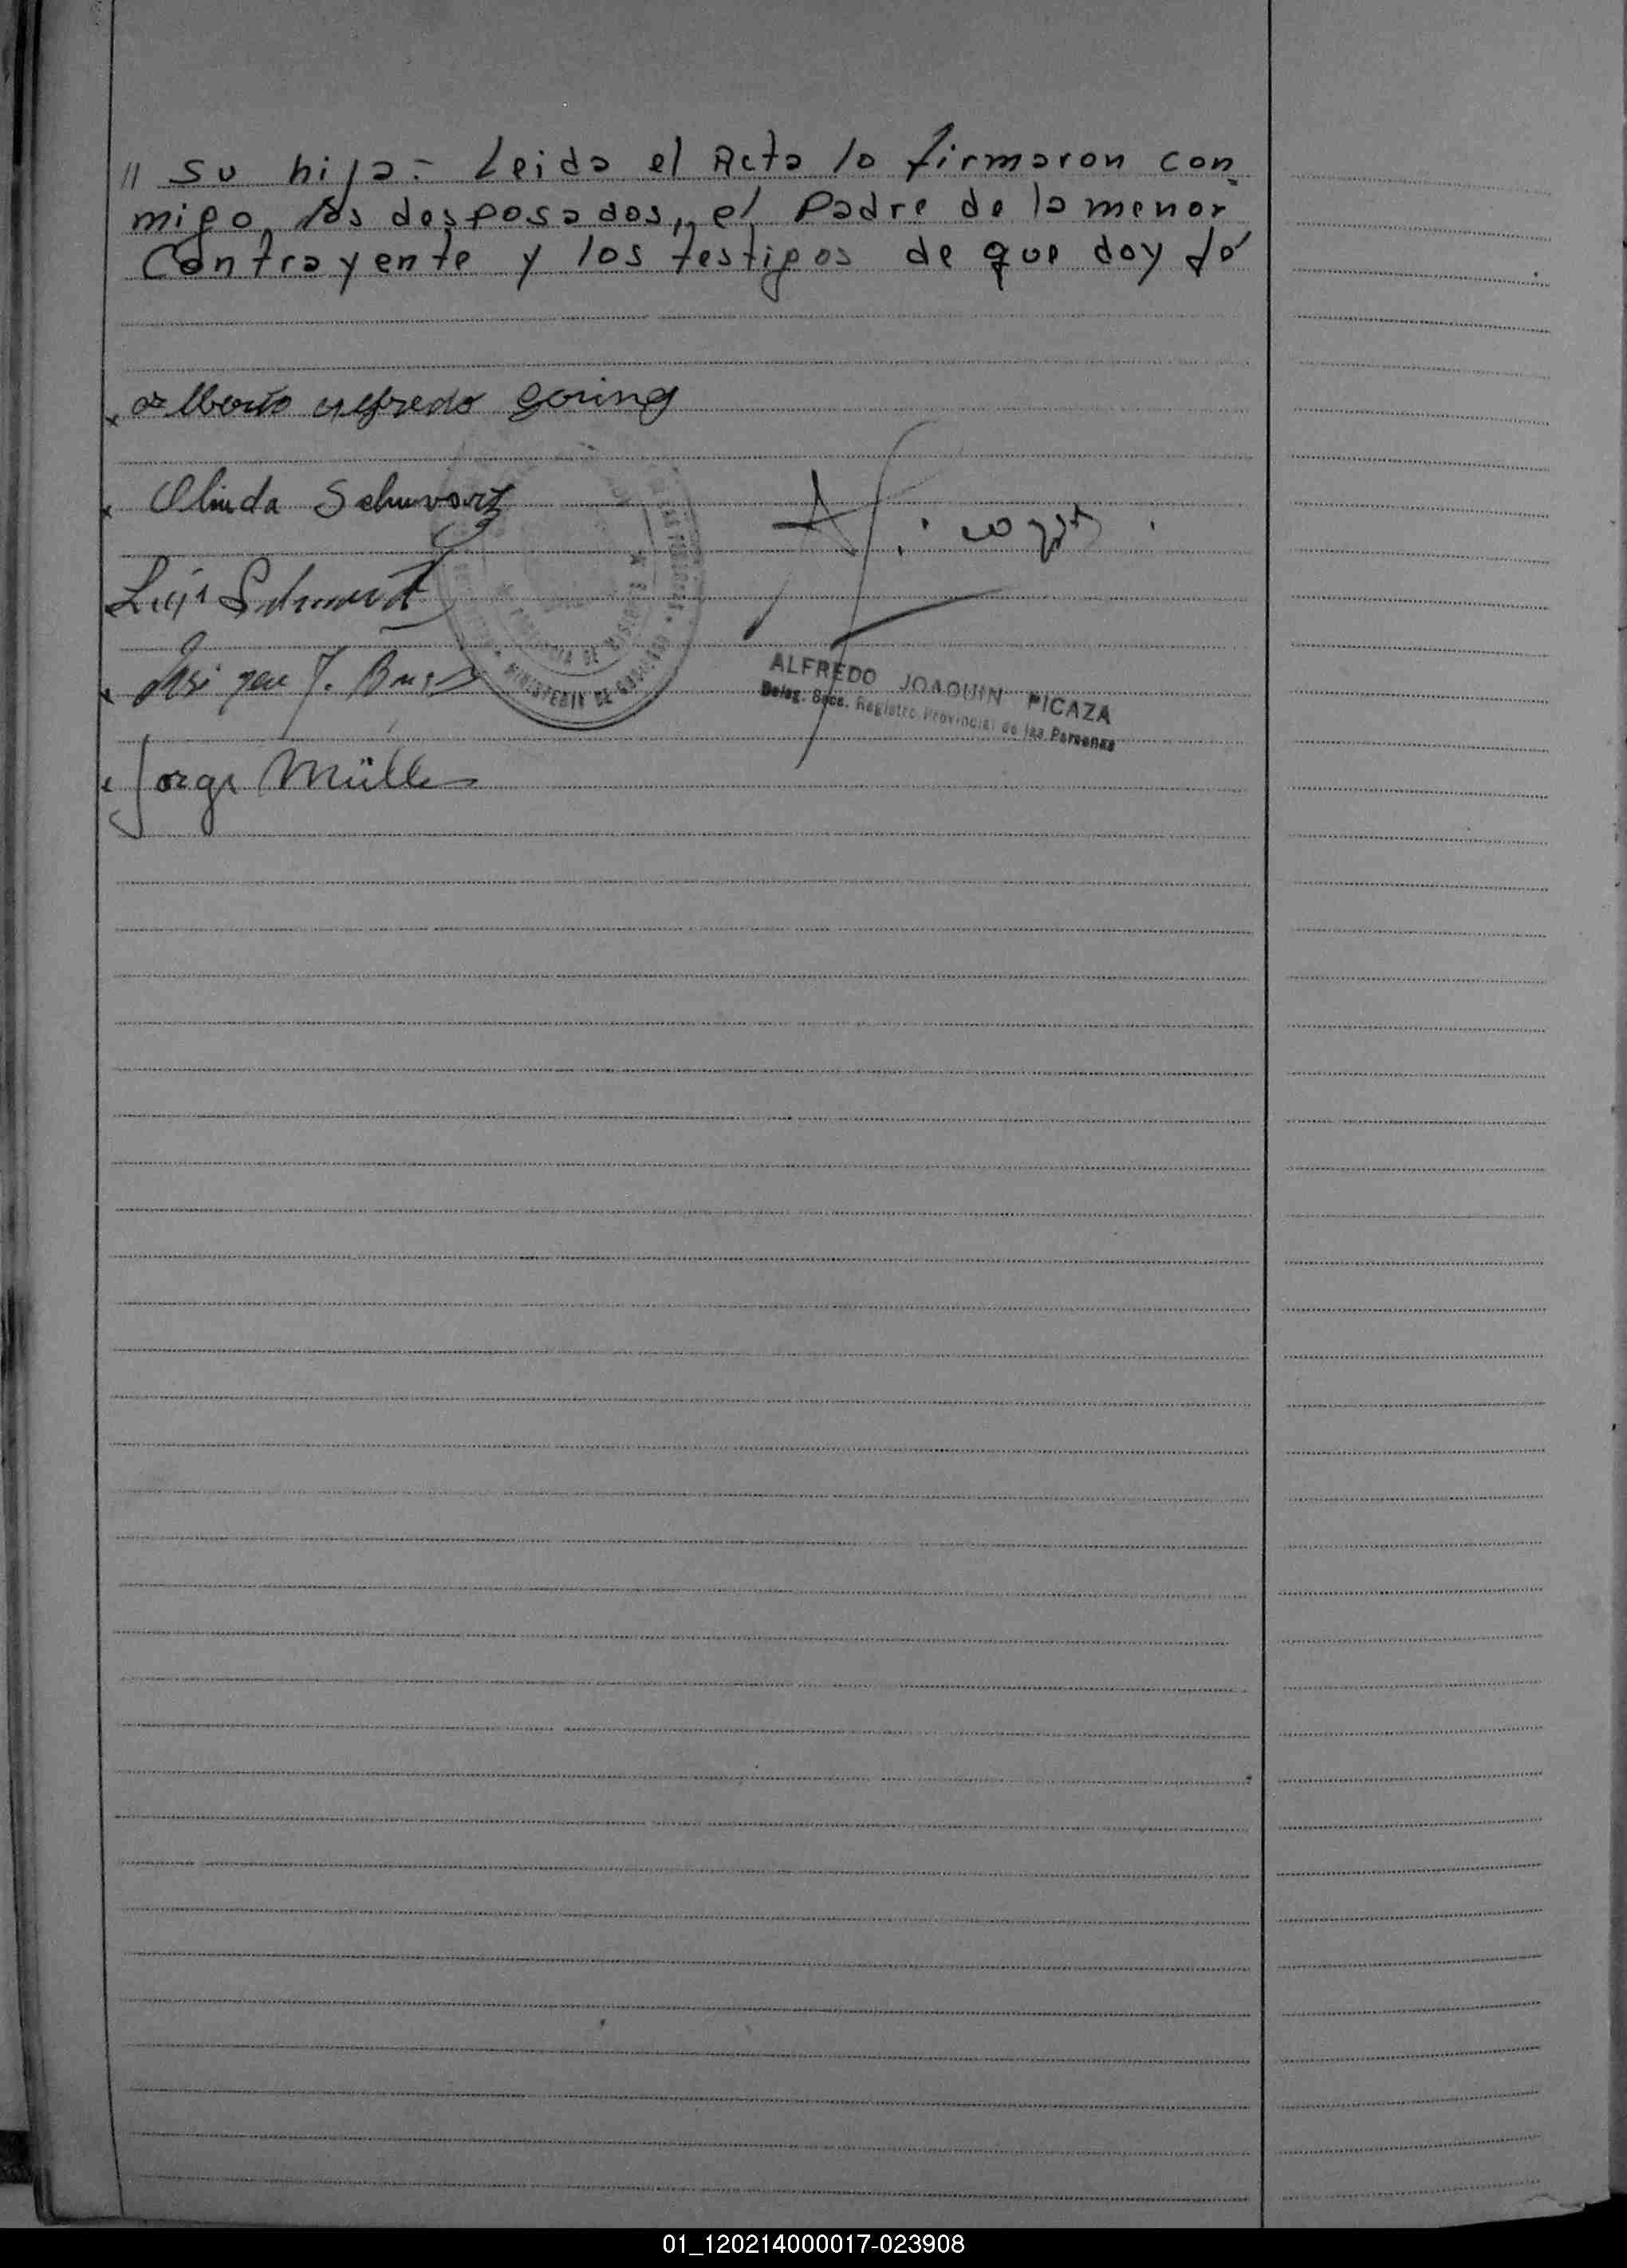 // su hija.- Leida el Acta lo firmaron con
migo, los desposados, el Padre de la menor
Contrayente y los testigos de que doy fé
Alberto Alfredo Goring
Olinda Schuvartz
Luis
J.
Jorge Müller
PROVINCIA DE MISIONES
MINISTERIO DE GOBIERNO
ALFREDO JOAQUIN PICAZA
Deleg. Secc. Registro Provincial de las Personas
01_120214000017-023908